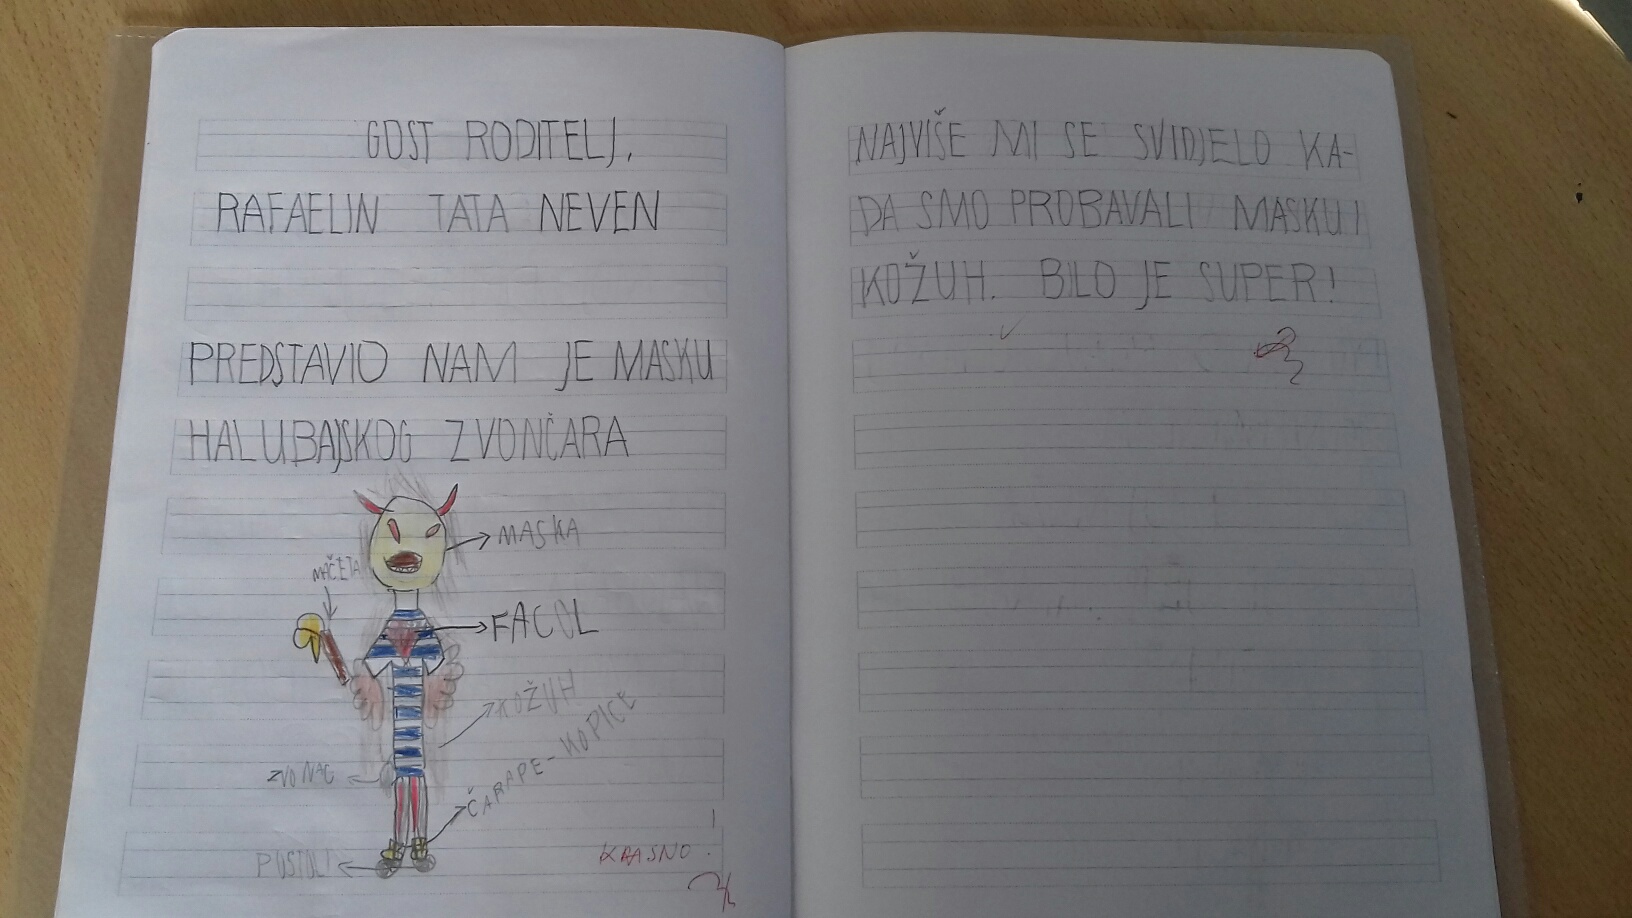 GOST RODITELJ,
RAFAELIN TATA NEVEN
PREDSTAVIO NAM JE MASKU
HALUBAJSKOG ZVONČARA
MASKA
MAČETA
FACOL
KOŽUH
ČARAPE-KOPICE
ZVONAC
POSTOLI
KRASNO!
NAJVIŠE MI SE SVIDJELO KA-
DA SMO PROBAVALI MASKU I
KOŽUH. BILO JE SUPER!